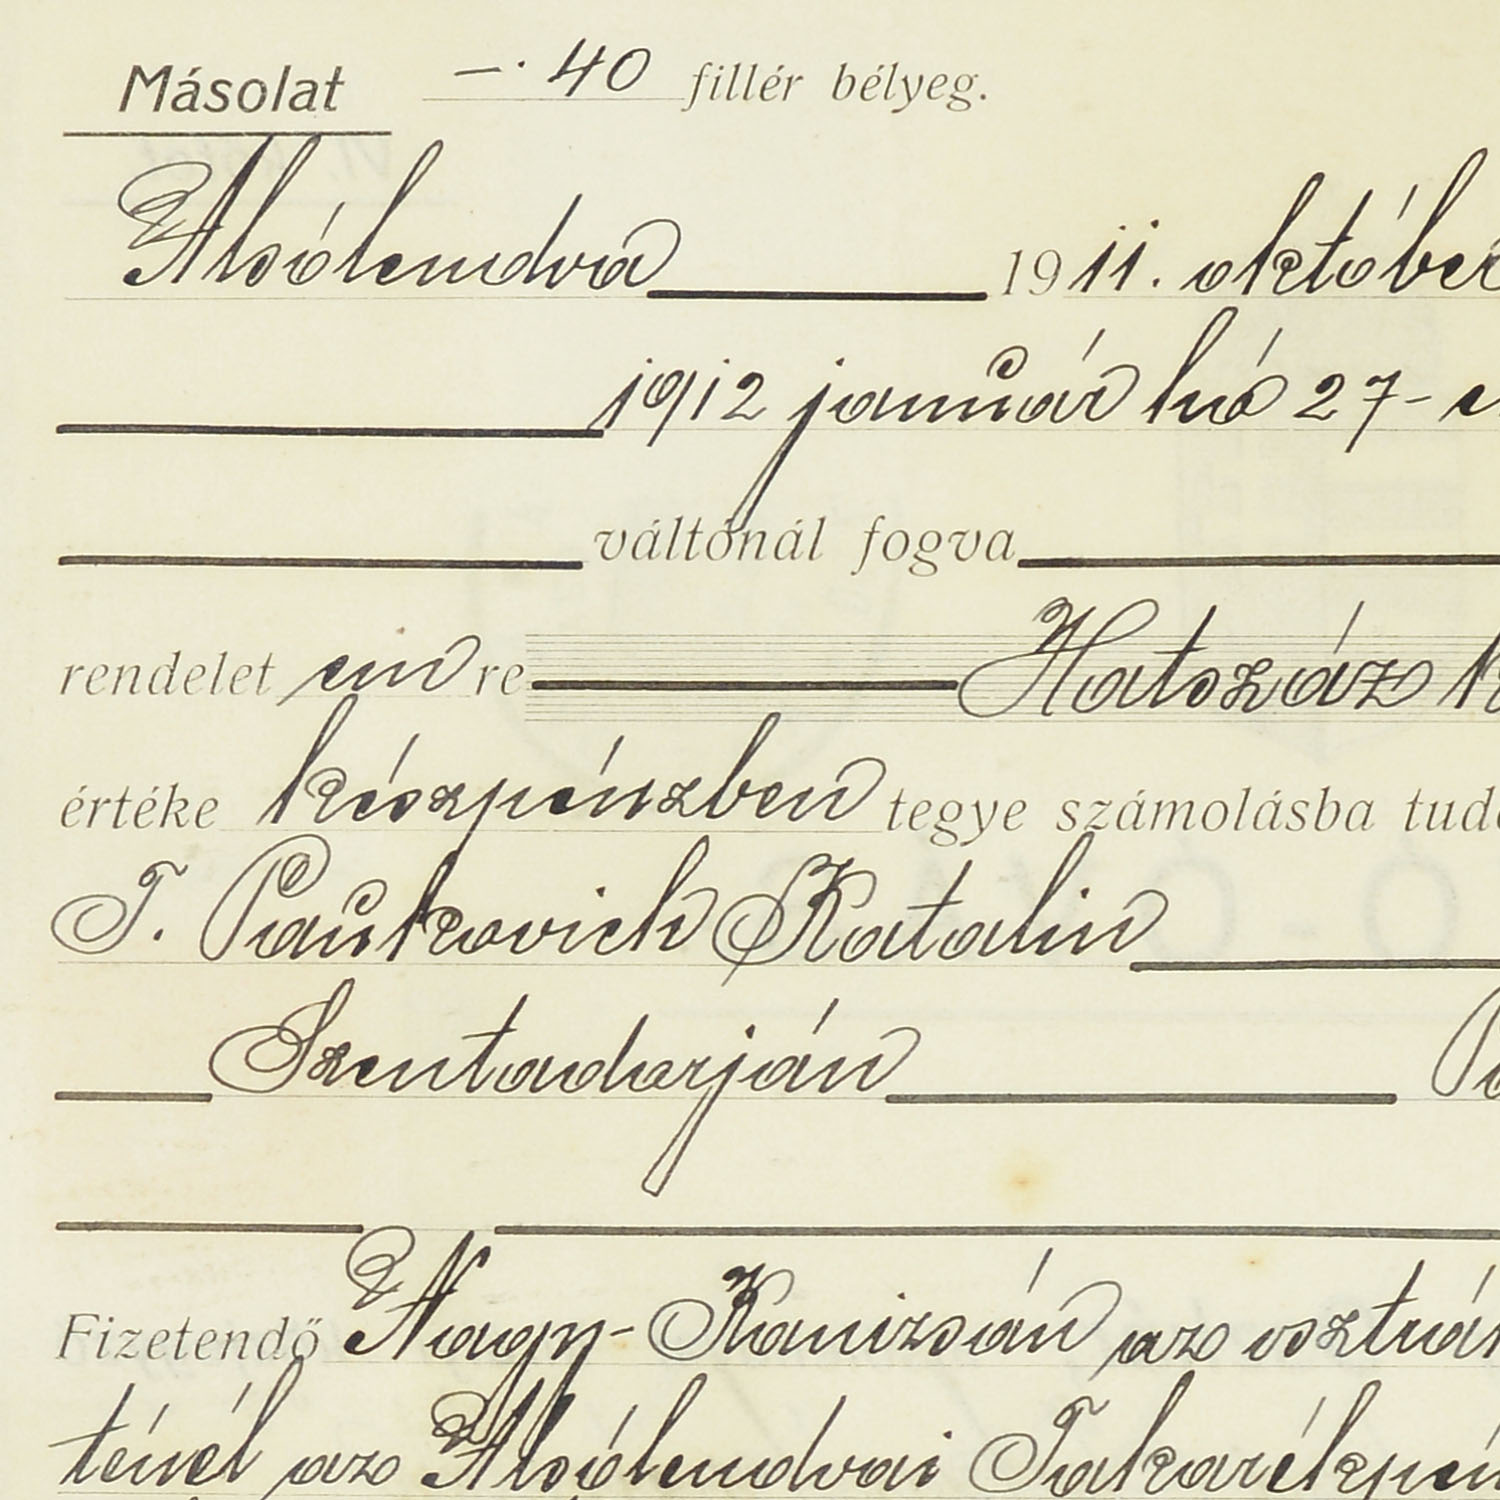 Másolat —.40 fillér bélyeg.
Alsólendva 1911. október
1912 január hó 27-
váltónál fogva
rendelet em re Hatszáz
értéke készpénzben tegye számolásba
T. Paukovich Katalin
Szentadorján
Fizetendő Nagy-Kanizsán az osztrák
ténél az Alsólendvai Takarékpén